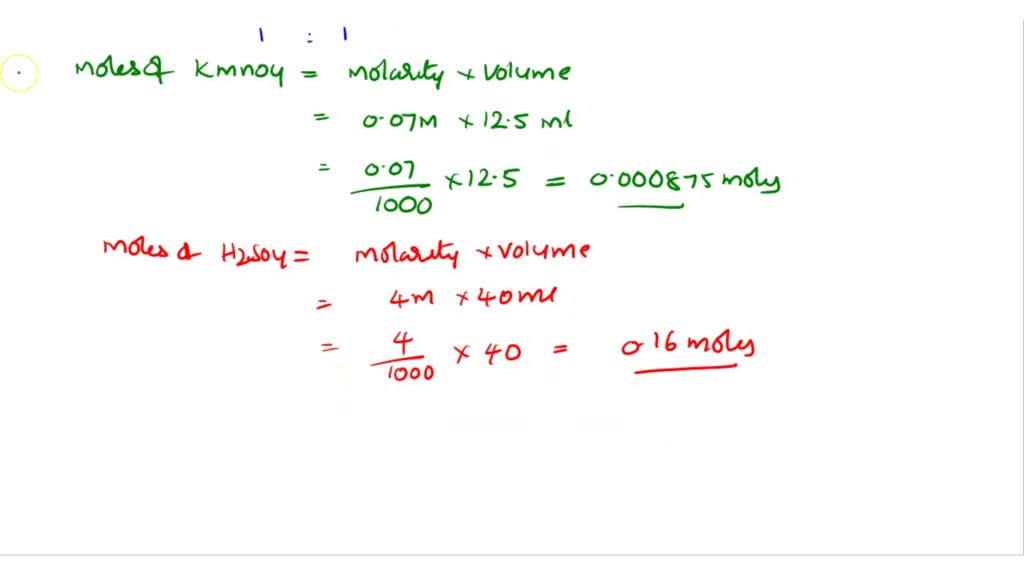 1 : 1
Moles of KMnO4 = Molarity × Volume
= 0.07M × 12.5 ml
= 0.07/1000 × 12.5 = 0.000875 moles
Moles of H2SO4 = Molarity × Volume
= 4M × 40ml
= 4/1000 × 40 = 0.16 moles